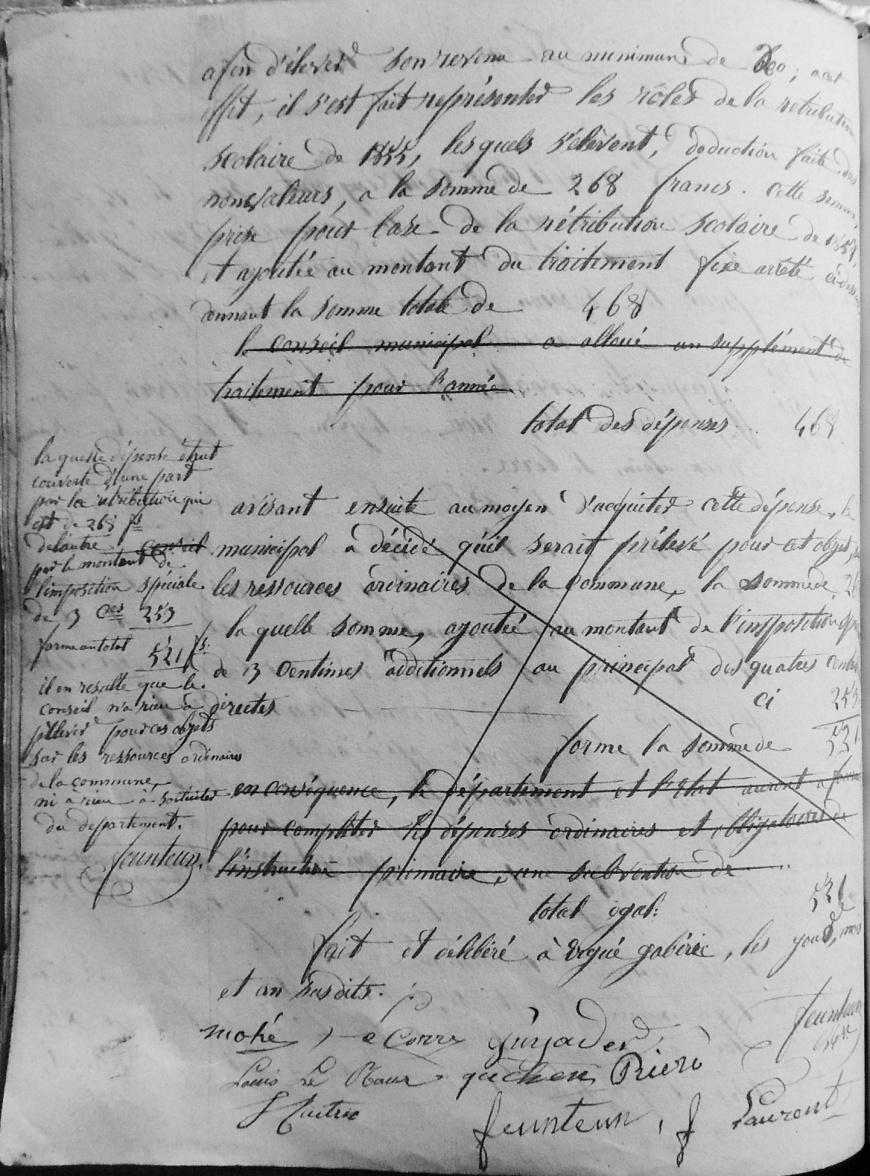 afin d'élever son revenu au minimum de 600; a cet
effet, il s'est fait représenter les rôles de la retribution
scolaire de 1855, lesquels s'élèvent, deduction faite des
nonvaleurs, a la somme de 268 francs. cette somme,
prise pour base de la rétribution scolaire de 1857,
et ajoutée au montant du traitement fixe arrêté ci dessus
donnant la somme totale de 468
le conseil municipal a alloué un supplément de
traitement pour l'année
total des dépenses 468
la quelle dépense étant
couverte d'une part
par la rétribution qui
est de 268 fs
de l'autre
par le montant de
l'imposition spéciale
de 3 ces 253
forme au total 521 fs.
il en resulte que le
conseil n'a rien à
prélever pour ces objets
sur les ressources ordinaires
de la commune,
ni a rien à solliciter
du departement.
feunteun
avisant ensuite au moyen d'acquiter cette dépense, le
conseil municipal a décidé qu'il serait prélevé pour cet objet,
les ressources ordinaires de la commune, la somme de
la quelle somme, ajoutée au montant de l'imposition
de 3 centimes additionnels au principal des quatres
directes ci 253
forme la somme de 521
en conséquence, le département et l'Etat auront a
pour completer les dépenses ordinaires et obligatoires de
l'instruction primaire, une subvention de
total egal: 521
fait et délibéré à Ergué gabéric, les jour, mois
et an susdits.
mahé Le Corre Guyader feunteun
Louis Le guichen Prieré
feunteun, f Laurent